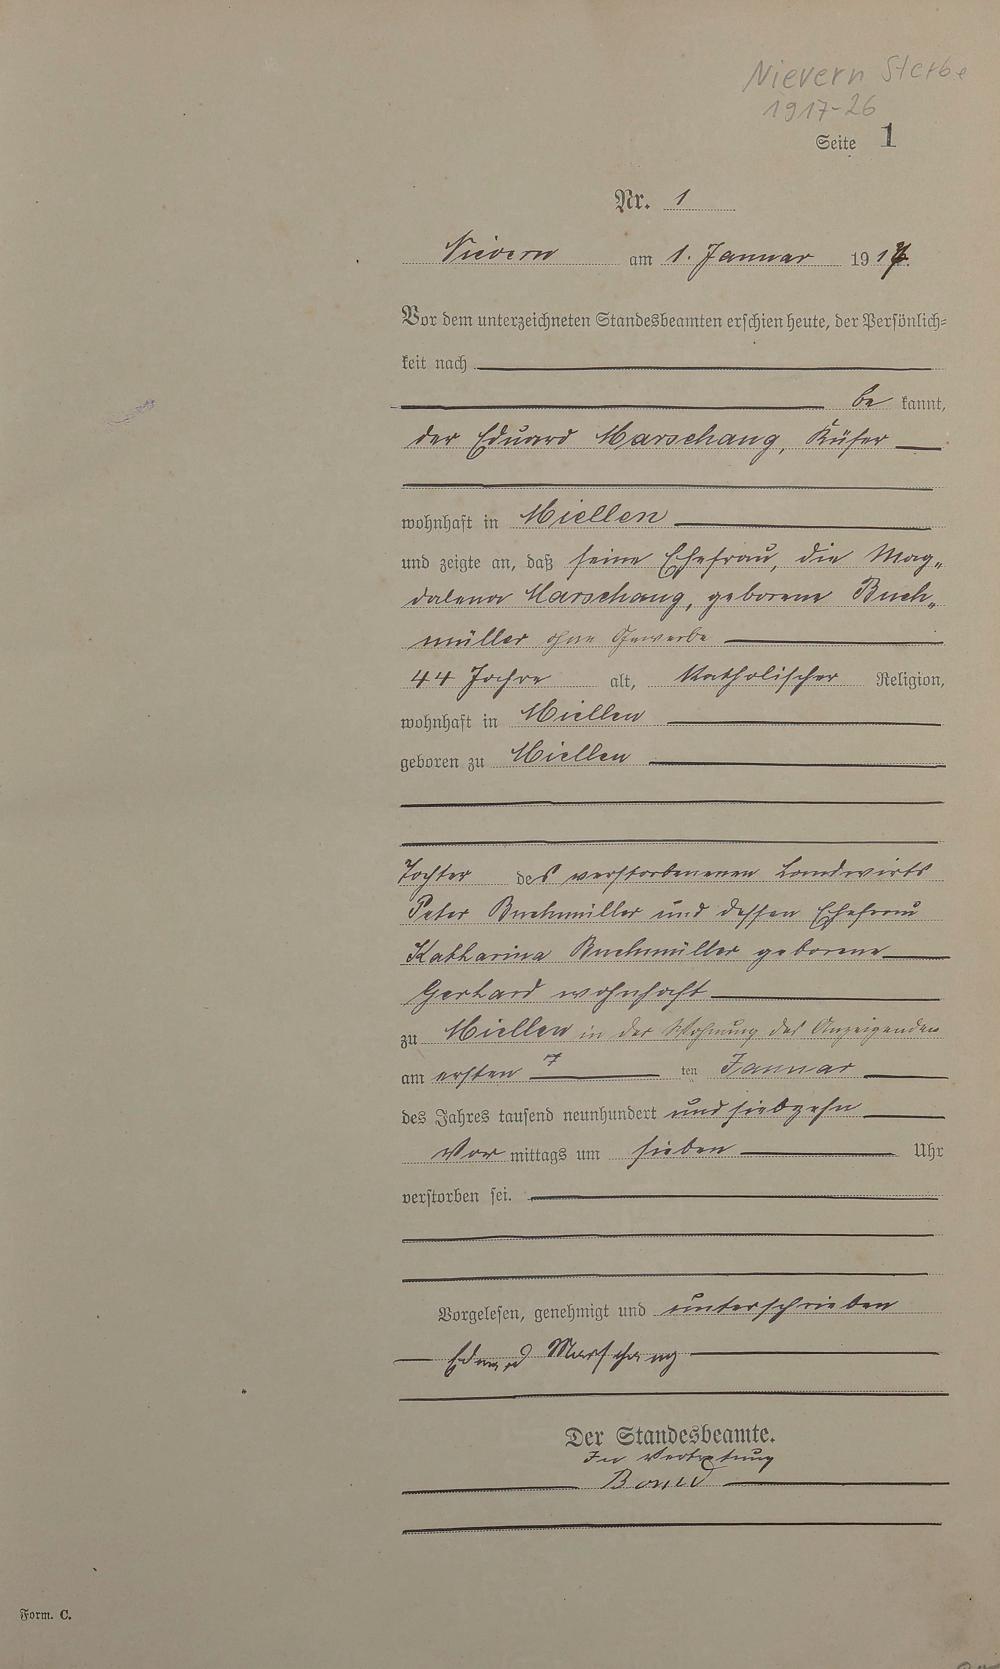 Nievern Sterbe
1917-26
Seite 1
Nr. 1
Nievern am 1. Januar 1917.
Vor dem unterzeichneten Standesbeamten erschien heute, der Persönlich-
keit nach
be kannt,
der Eduard Marschang, Küfer
wohnhaft in Miellen
und zeigte an, daß seine Ehefrau, die Mag-
dalena Marschang, geborene Buch-
müller ohne Gewerbe
44 Jahre alt, katholischer Religion,
wohnhaft in Miellen
geboren zu Miellen
Tochter des verstorbenenen Landwirts
Peter Buchmüller und dessen Ehefrau
Katharina Buchmüller geborene
Gerhard wohnhaft
zu Miellen in der Wohnung des Anzeigenden
am ersten ten Januar
des Jahres tausend neunhundert und siebzehn
Vor mittags um sieben Uhr
verstorben sei.
Vorgelesen, genehmigt und unterschrieben
Eduard Marschang
Der Standesbeamte.
In Vertretung
Form. C.